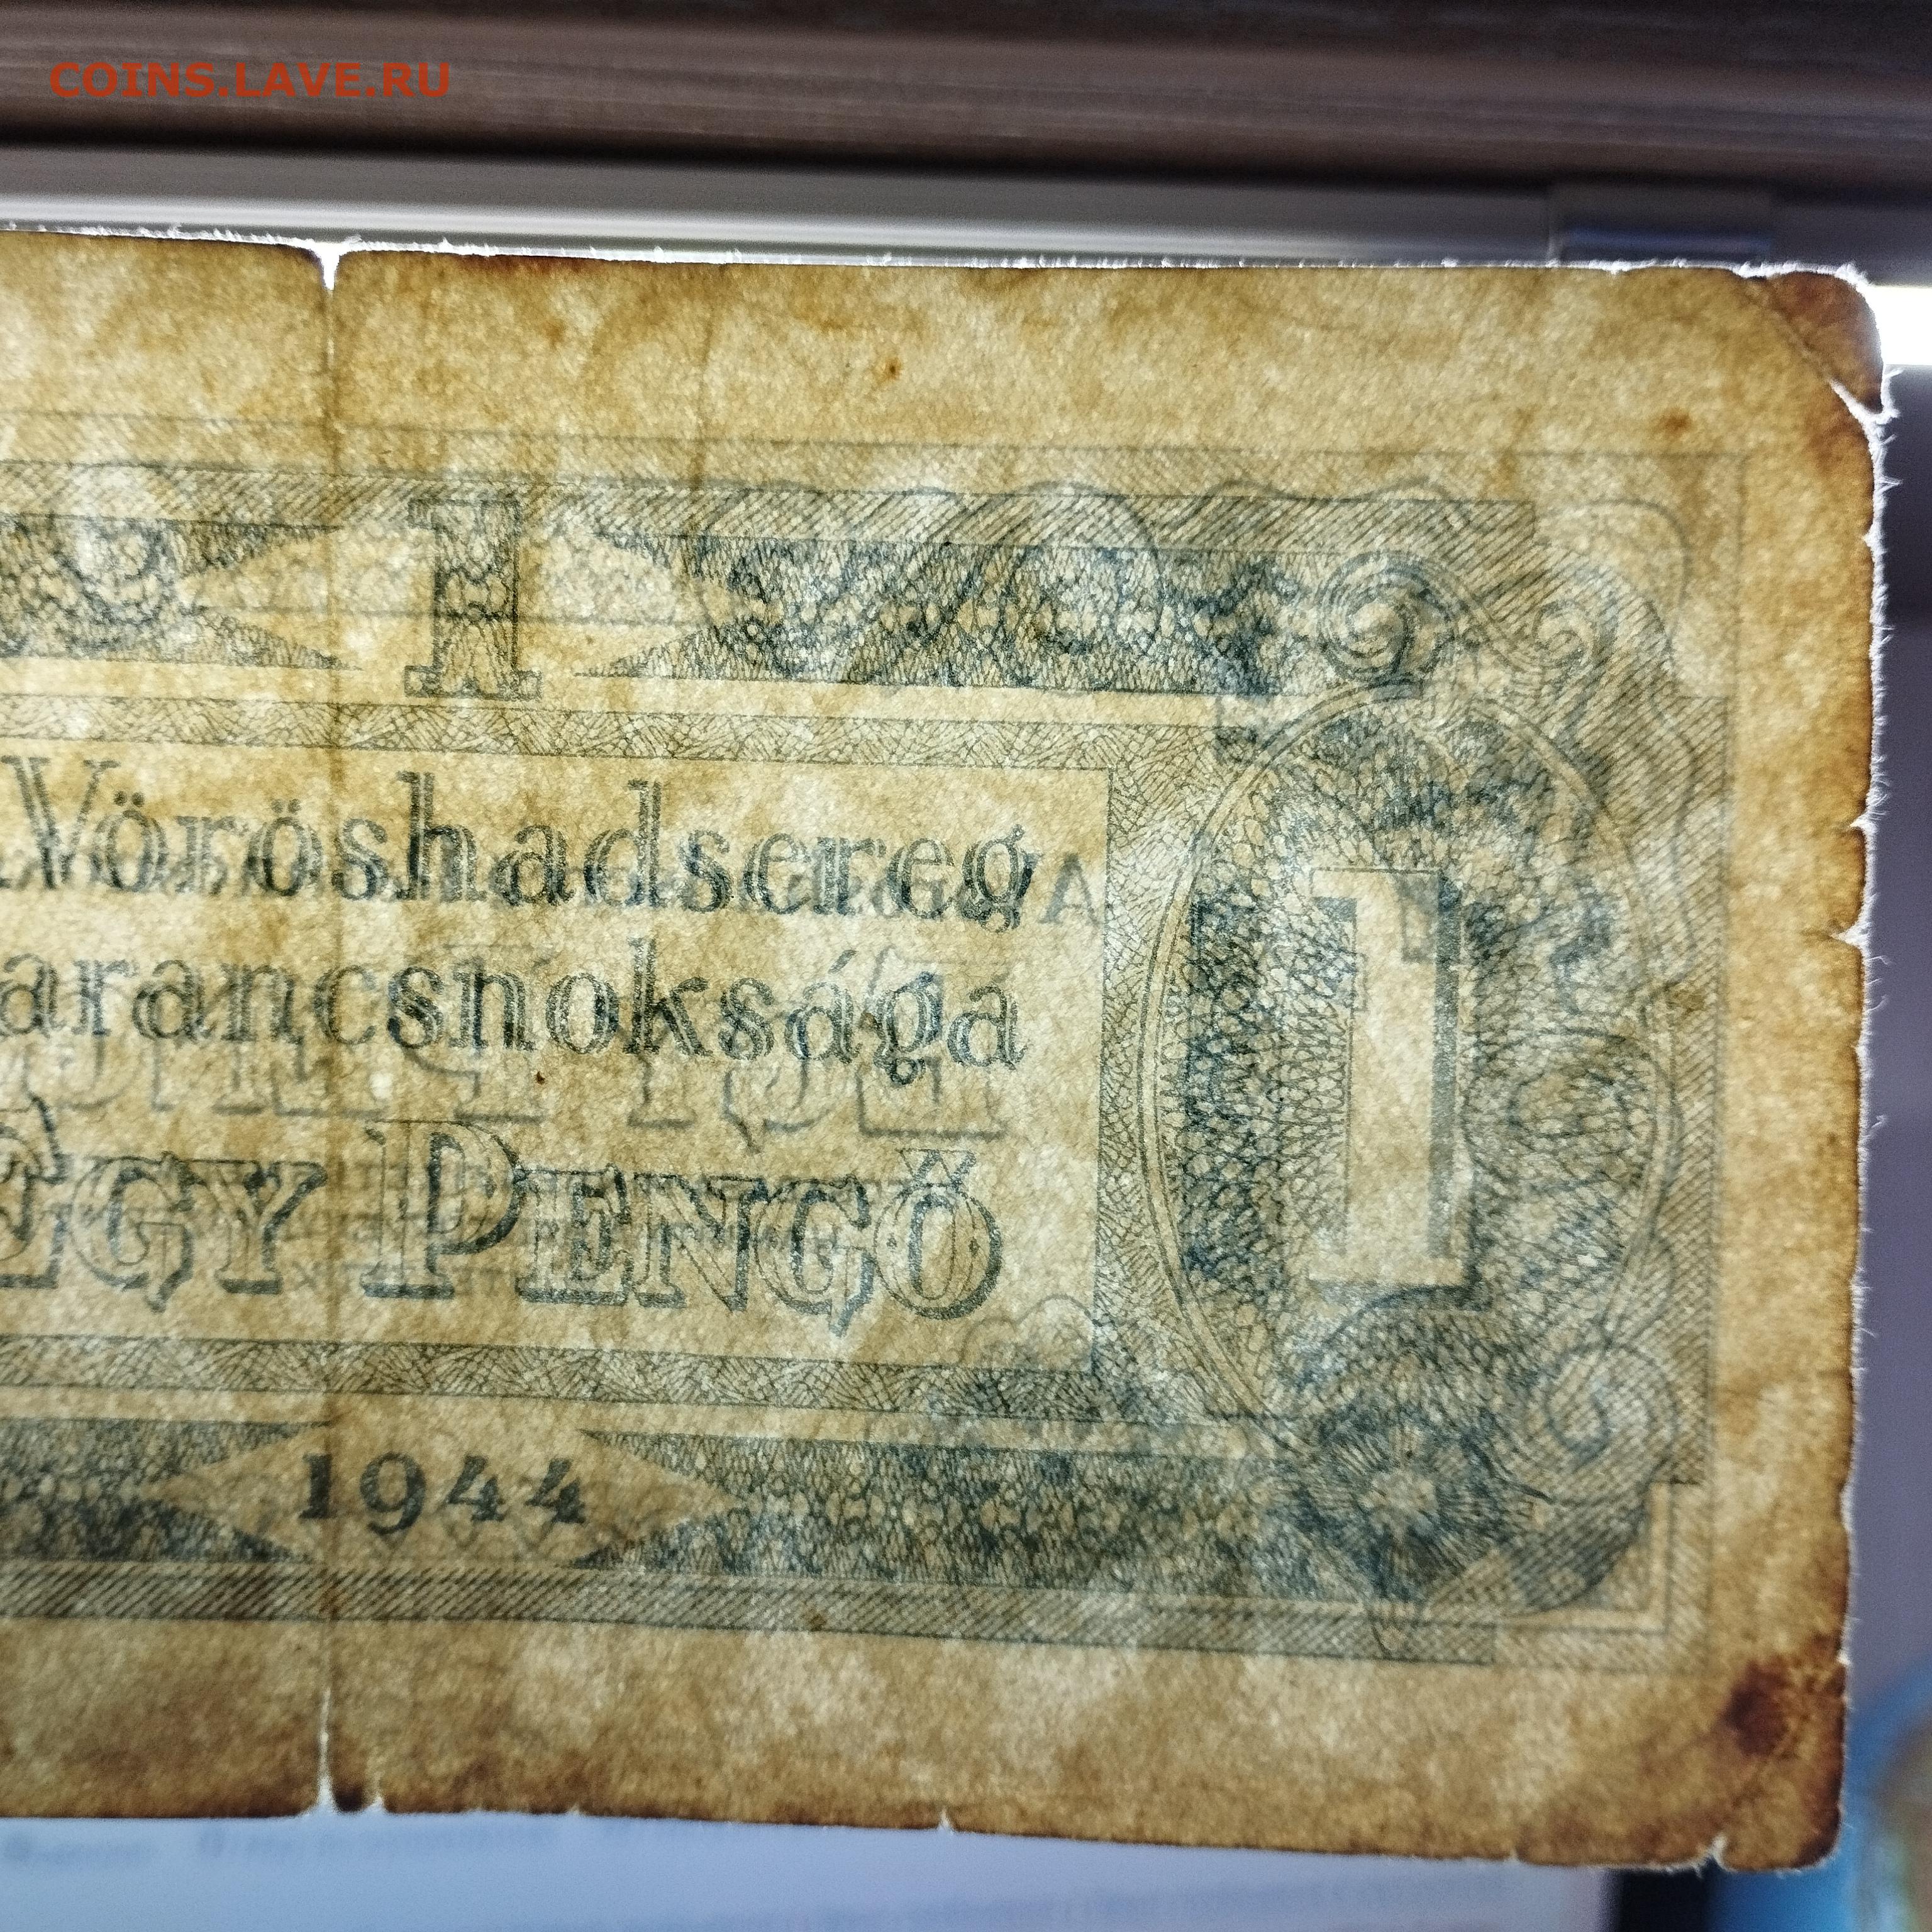 COINS.LAVE.RU
1
Vöröshadsereg
arancsnoksága
EGY PENGŐ
1
1944